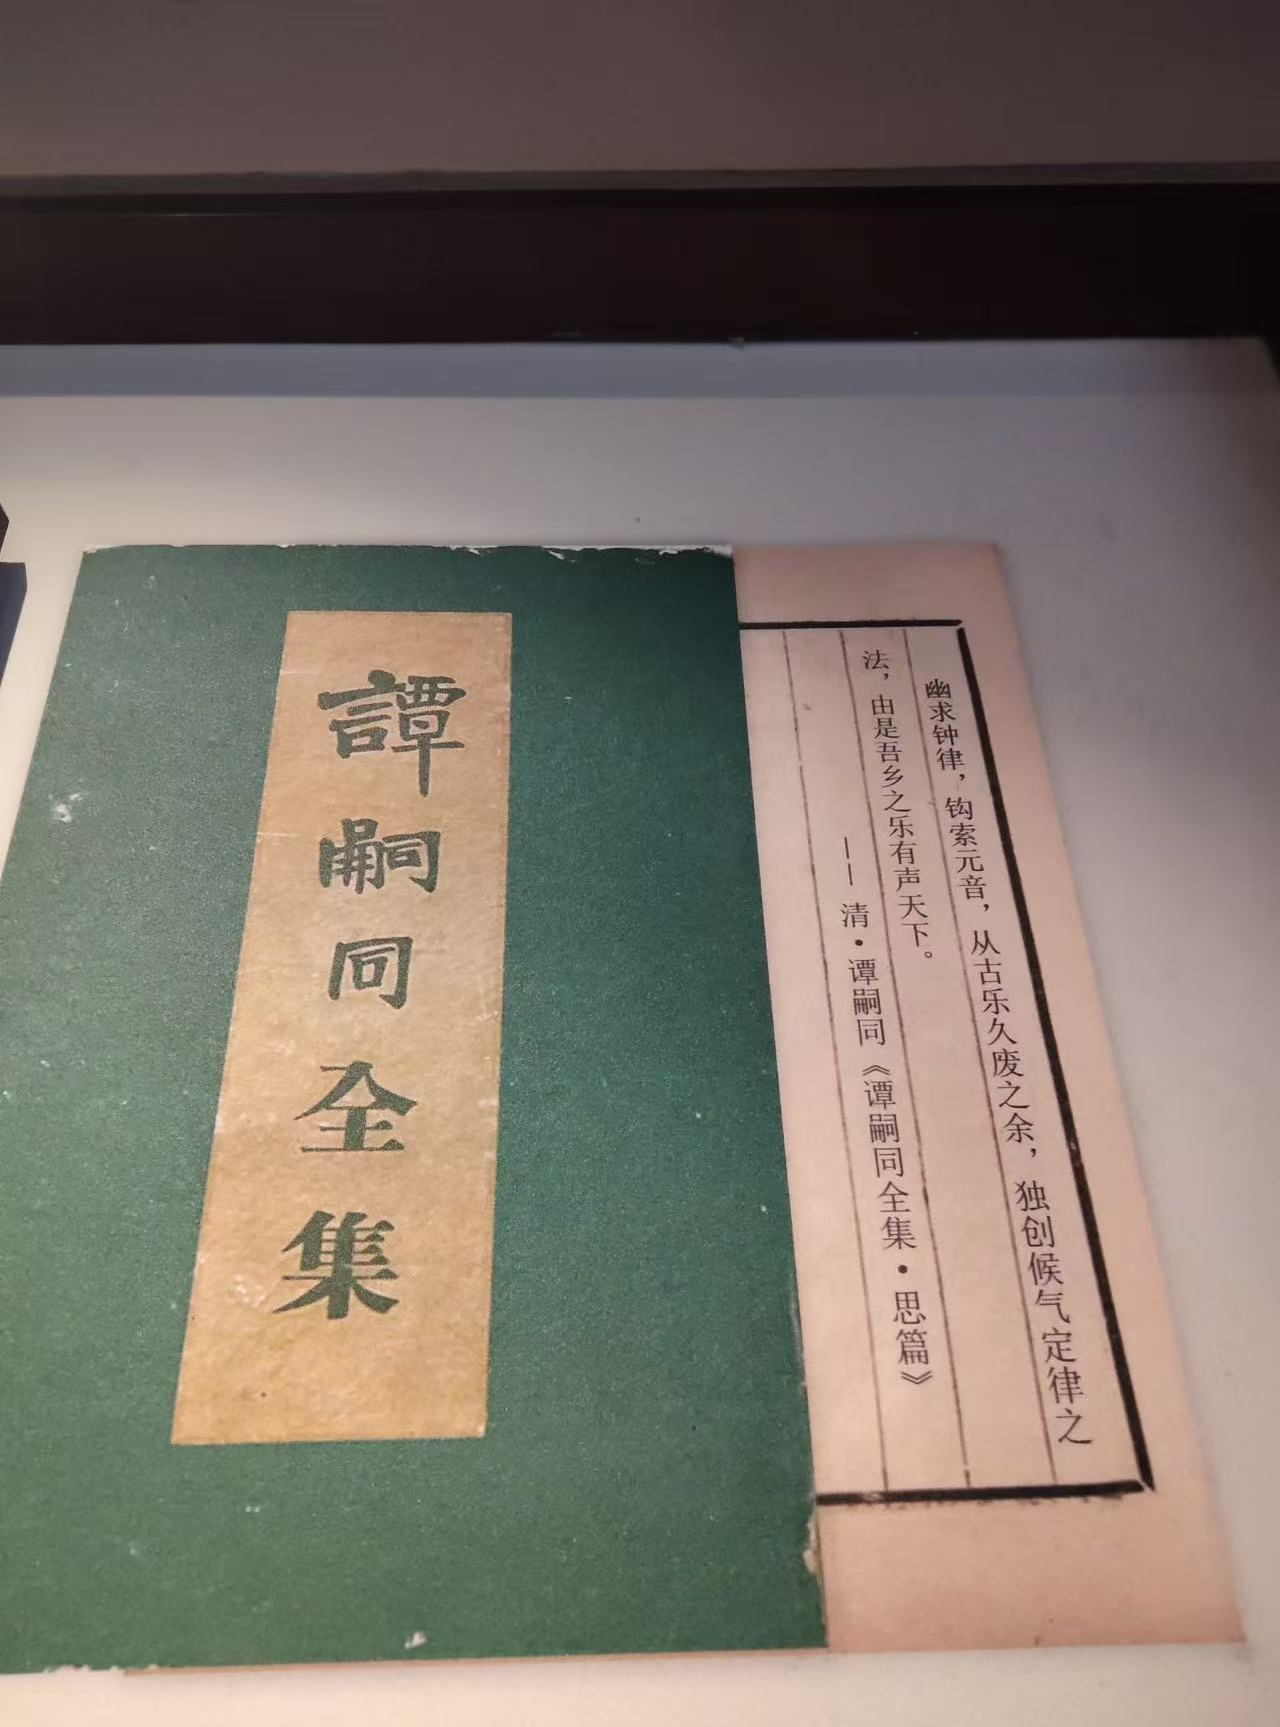 譚嗣同全集
幽求钟律，钩索元音，从古乐久废之余，独创候气定律之
法，由是吾乡之乐有声天下。
——清·谭嗣同《谭嗣同全集·思篇》